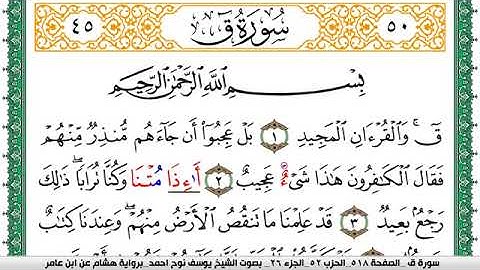 ٥٠ سُورَةُ ق ٤٥
بِسْمِ اللَّهِ الرَّحْمَٰنِ الرَّحِيمِ
قٓ ۚ وَالْقُرْءَانِ الْمَجِيدِ ١ بَلْ عَجِبُوٓا۟ أَن جَآءَهُم مُّنذِرٌ مِّنْهُمْ
فَقَالَ الْكَٰفِرُونَ هَٰذَا شَىْءٌ عَجِيبٌ ٢ أَٰ۬ءِذَا مُتْنَا وَكُنَّا تُرَابًا ۖ ذَٰلِكَ
رَجْعٌۢ بَعِيدٌ ٣ قَدْ عَلِمْنَا مَا تَنقُصُ الْأَرْضُ مِنْهُمْ ۖ وَعِندَنَا كِتَٰبٌ
سورة ق_ الصفحة ٥١٨_الحزب ٥٢_الجزء ٢٦_ بصوت الشيخ يوسف نوح احمد_برواية هشام عن ابن عامر